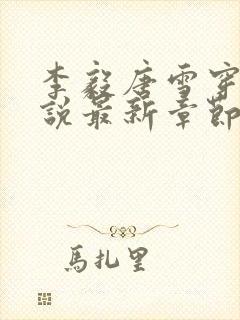 李毅唐雪穿
說最新章節
馬扎里